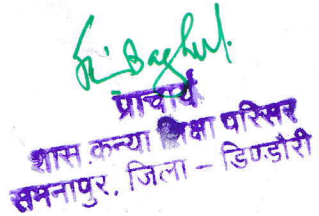 प्राचार्य
शास. कन्या शिक्षा परिसर
समनापुर, जिला - डिण्डौरी